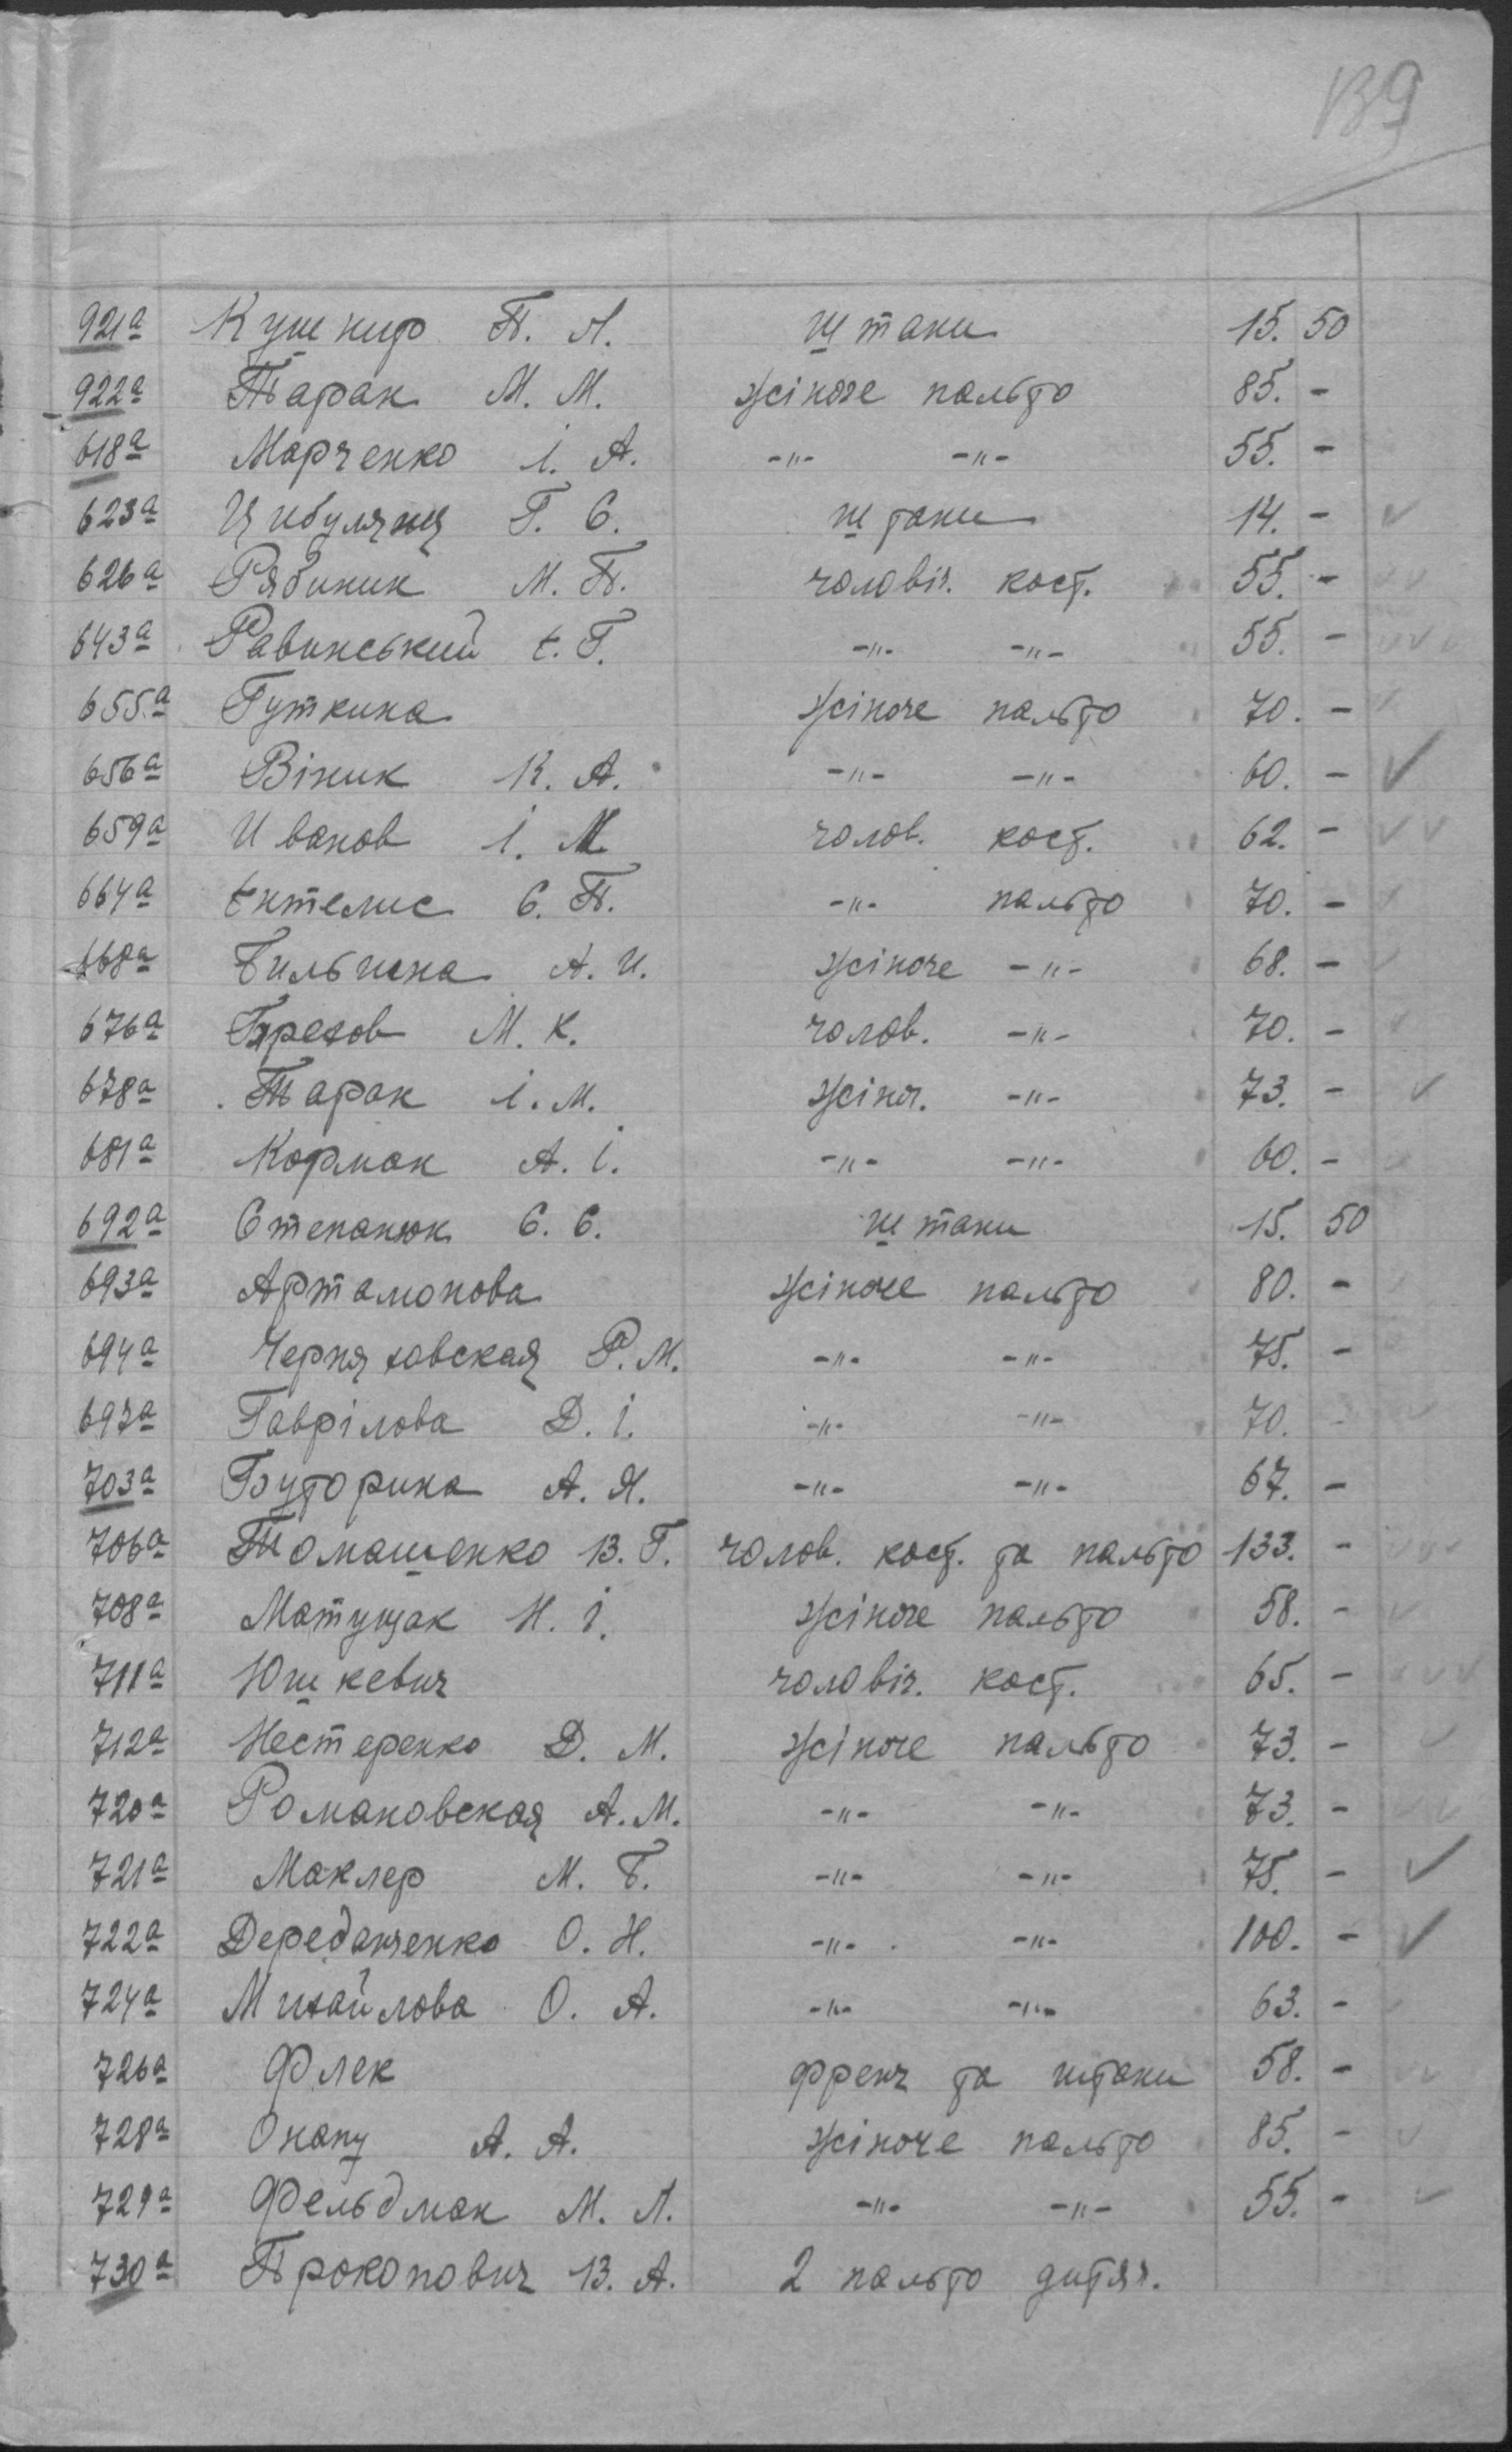 139
921а Кушнир П. Л. штани 15. 50
922а Тарак М. М. жіноче пальто 85. -
618а Марченко І. А. -"- -"- 55. -
623а Цибуляня Г. С. штани 14. - ✓
626а Рябиник М. П. чоловіч. кост. 55. -
643а Равинський Є. Г. -"- -"- 55. -
655а Гуткина жіноче пальто 70. -
656а Віник К. А. -"- -"- 60. - ✓
659а Иванов І. М. чолов. кост. 62. - ✓✓
664а Ентелис С. П. -"- пальто 70. - ✓
668а Бильчина А. И. жіноче -"- 68. - ✓
676а М. К. чолов. -"- 70. -
678а Тарак І. М. жіноч. -"- 73. - ✓
681а Кормак А. І. -"- -"- 60. -
692а Степанюк С. С. штани 15. 50
693а Артамонова жіноче пальто 80. -
694а Черняховская Р. М. -"- -"- 75. -
697а Гаврілова Д. І. -"- -"- 70. -
703а Буторина А. Я. -"- -"- 67. -
706а Томашенко В. Г. чолов. кост. та пальто 133. -
708а Матущак Н. І. жіноче пальто 58. - ✓
711а Юшкевич чоловіч. кост. 65. -
712а Нестеренко Д. М. жіноче пальто 73. - ✓
720а Романовская А. М. -"- -"- 73. -
721а Маклер М. Б. -"- -"- 75. - ✓
722а Дереданченко О. Н. -"- -"- 100. - ✓
724а Михайлова О. А. -"- -"- 63. -
726а Флек френч та штани 58. -
728а Онапу А. А. жіноче пальто 85. - ✓
729а Фельдман М. Л. -"- -"- 55. - ✓
730а Прокопович В. А. 2 пальто дитяч.